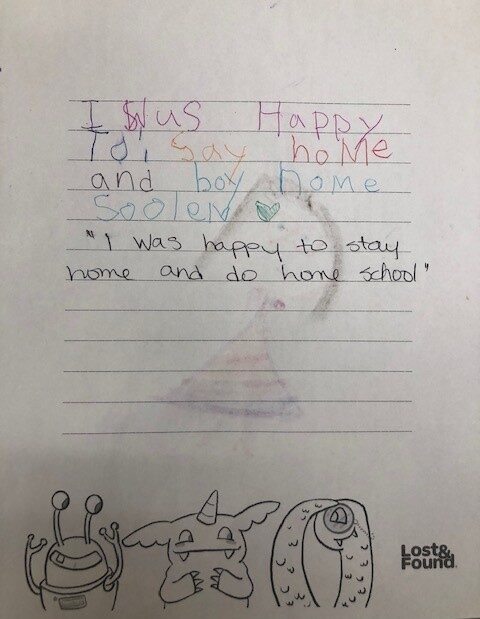 I Wus Happy
To Say hoMe
and boy home
Soolen
"I was happy to stay
home and do home school"
Lost&
Found